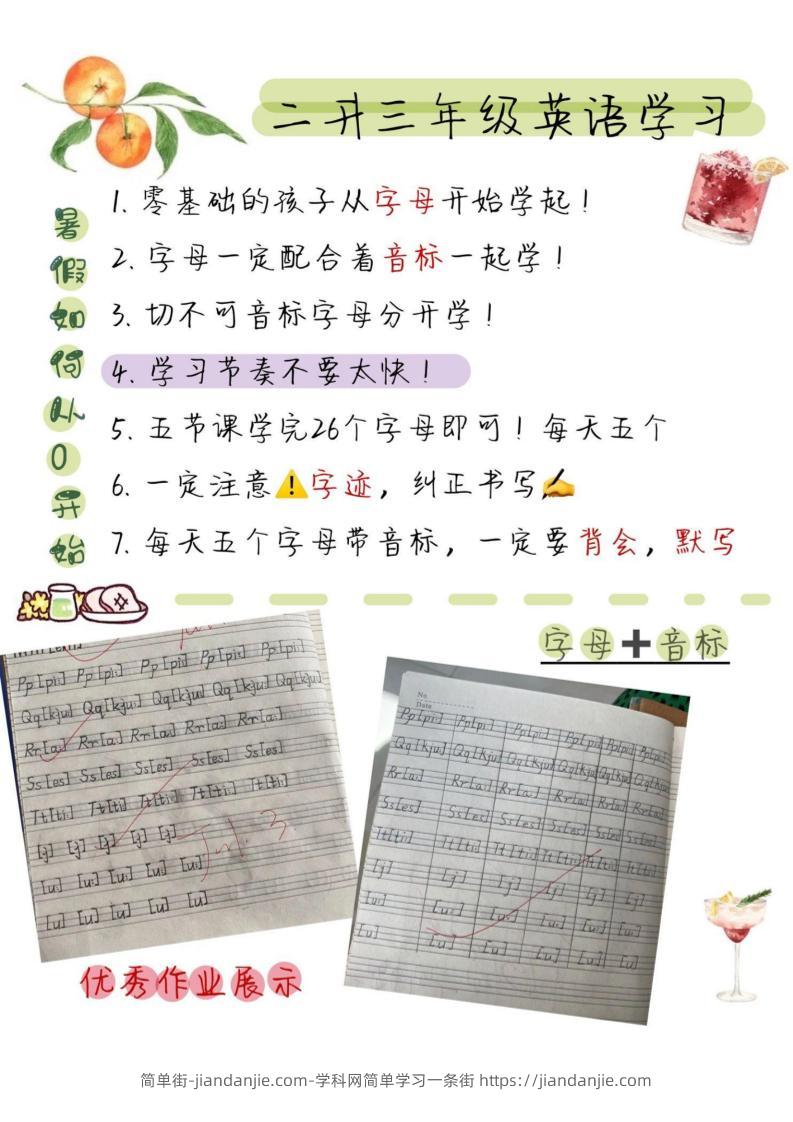 二升三年级英语学习
暑假如何从0开始
1. 零基础的孩子从字母开始学起！
2. 字母一定配合着音标一起学！
3. 切不可音标字母分开学！
4. 学习节奏不要太快！
5. 五节课学完26个字母即可！每天五个
6. 一定注意⚠️字迹，纠正书写✍
7. 每天五个字母带音标，一定要背会，默写
字母➕音标
Pp [pi:] Pp [pi:] Pp [pi:] Pp [pi:] Pp [pi:]
Qq [kju:] Qq [kju:] Qq [kju:] Qq [kju:] Qq [kju:]
Rr [a:] Rr [a:] Rr [a:] Rr [a:] Rr [a:]
Ss [es] Ss [es] Ss [es] Ss [es] Ss [es]
Tt [ti:] Tt [ti:] Tt [ti:] Tt [ti:] Tt [ti:]
[j] [j] [j] [j] [j]
[u:] [u:] [u:] [u:] [u:]
[u] [u] [u] [u] [u]
No.
Date
Pp [pi:] Pp [pi:] Pp [pi:] Pp [pi:] Pp [pi:] Pp [pi:]
Qq [kju:] Qq [kju:] Qq [kju:] Qq [kju:] Qq [kju:] Qq [kju:]
Rr [a:] Rr [a:] Rr [a:] Rr [a:] Rr [a:] Rr [a:]
Ss [es] Ss [es] Ss [es] Ss [es] Ss [es] Ss [es]
Tt [ti:] Tt [ti:] Tt [ti:] Tt [ti:] Tt [ti:] Tt [ti:]
[j] [j] [j] [j] [j] [j]
[u:] [u:] [u:] [u:] [u:] [u:]
[u] [u] [u] [u] [u] [u]
优秀作业展示
简单街-jiandanjie.com-学科网简单学习一条街 https://jiandanjie.com